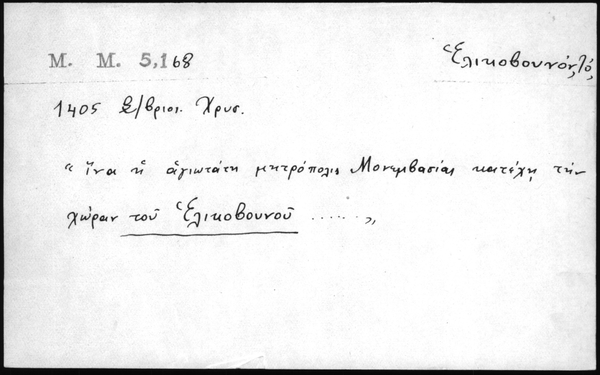 M. M. 5,168
Ἑλικοβουνόν, τό,
1405 Σ/βριος. Χρυσ.
« ἵνα ἡ ἁγιωτάτη μητρόπολις Μονεμβασίας κατέχῃ τὴν
χώραν τοῦ Ἑλικοβουνοῦ ...... »,